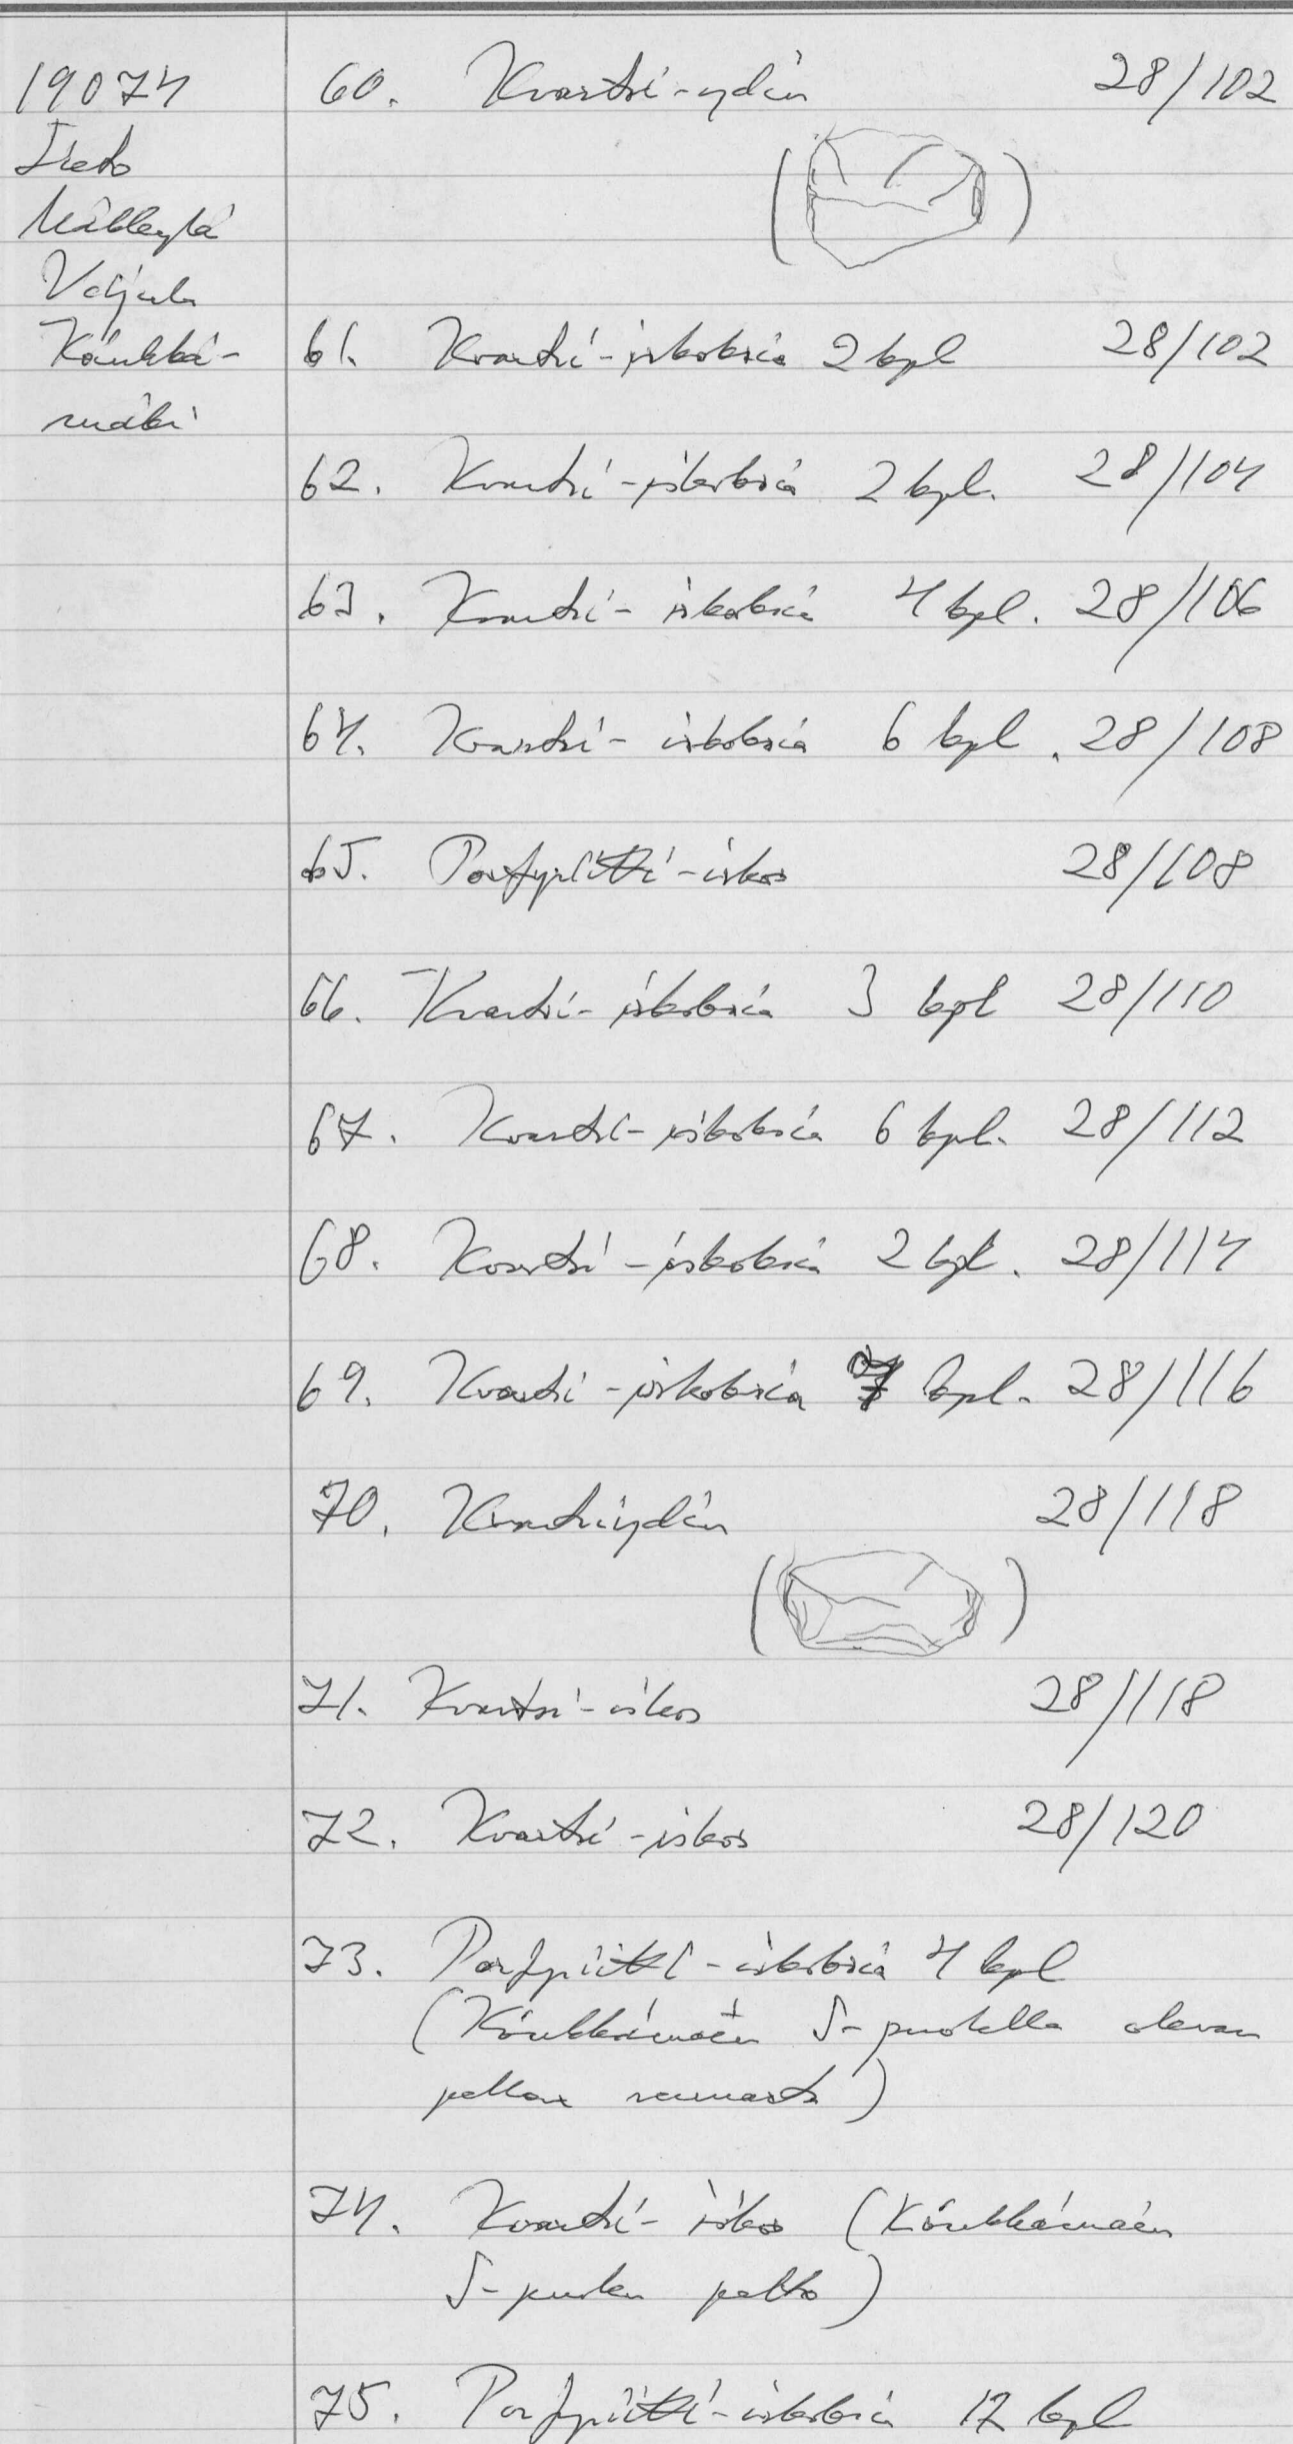 19074
Lieto
Näkkeylä
Valjula
Känkkä-
mäki
60. Kvartsi-ydin 28/102
61. Kvartsi-iskoksia 2 kpl 28/102
62. Kvartsi-iskoksia 2 kpl. 28/104
63. Kvartsi-iskoksia 4 kpl. 28/106
64. Kvartsi-iskoksia 6 kpl. 28/108
65. Porfyriitti-iskos 28/108
66. Kvartsi-iskoksia 3 kpl 28/110
67. Kvartsi-iskoksia 6 kpl. 28/112
68. Kvartsi-iskoksia 2 kpl. 28/114
69. Kvartsi-iskoksia kpl. 28/116
70. Kvartsiydin 28/118
71. Kvartsi-iskos 28/118
72. Kvartsi-iskos 28/120
73. Porfyriitti-iskoksia 4 kpl
(Känkkämäen S-puolella olevan
pellon reunasta)
74. Kvartsi-iskos (Känkkämäen
S-puolen pelto)
75. Porfyriitti-iskoksia 12 kpl